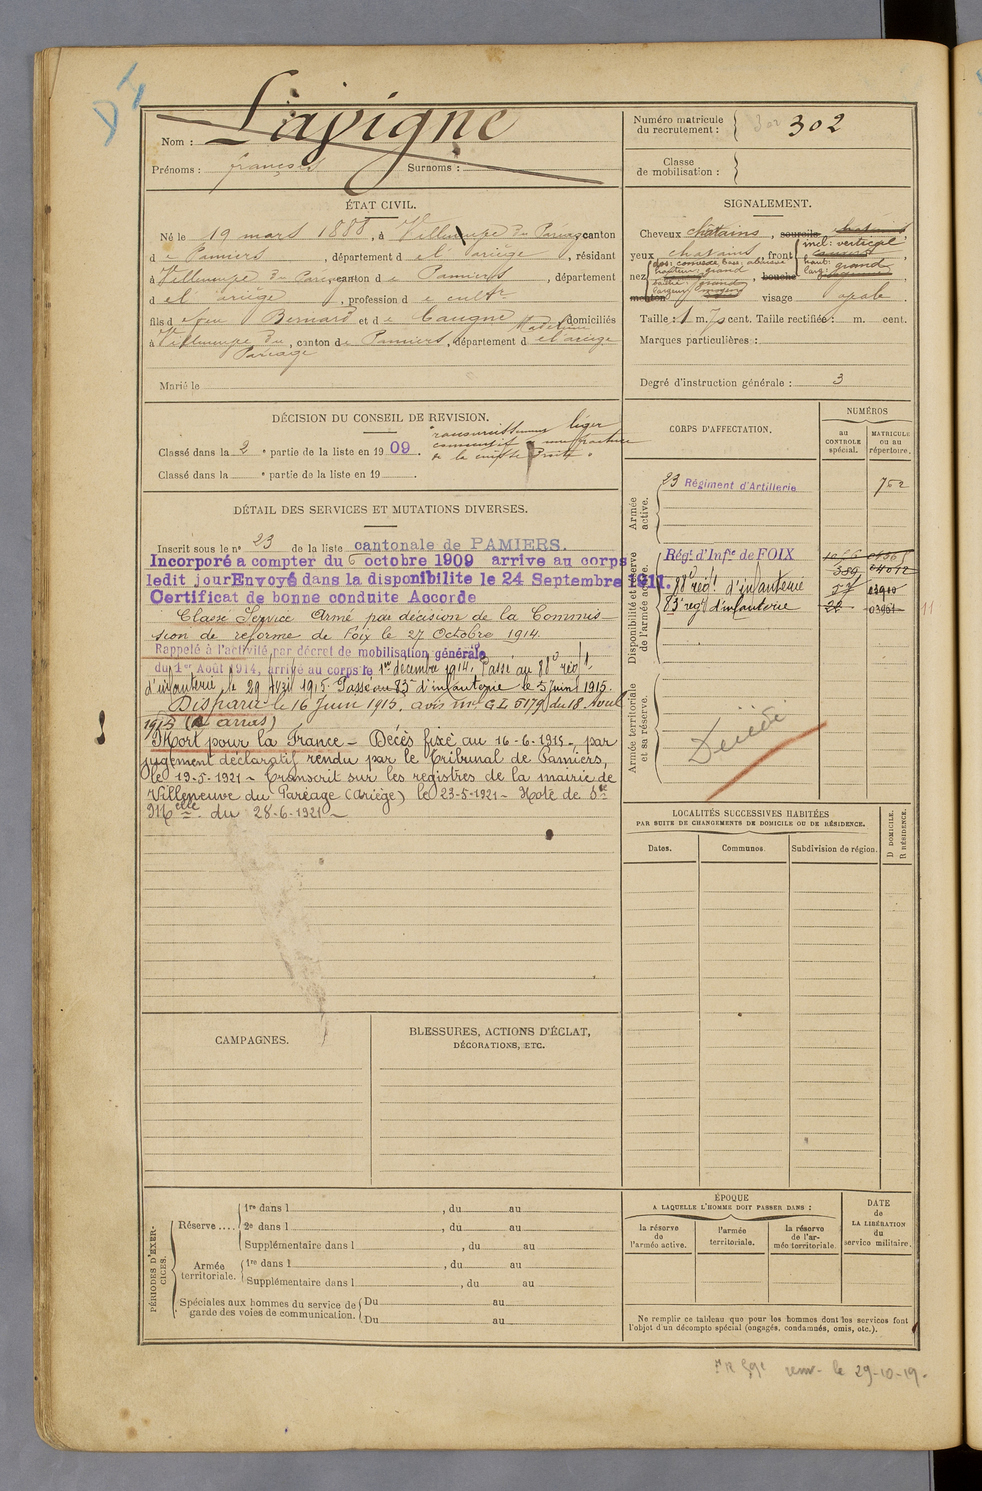 DI
Nom : Lapigne
Prénoms : françois Surnoms :
ÉTAT CIVIL.
Né le 19 mars 1888, à Villeneuve du Pareage, canton
de Pamiers, département de l'Ariège, résidant
à Villeneuve du Pareage, canton de Pamiers, département
de l'Ariège, profession de cultr
fils de feu Bernard et de Caugne Madeleine domiciliés
à Villeneuve du Paréage, canton de Pamiers, département de l'ariège
Marié le
DÉCISION DU CONSEIL DE REVISION.
Classé dans la 2e partie de la liste en 1909. raccourcissement léger
consécutif à une fracture
de la cuisse droite.
Classé dans la e partie de la liste en 19
DÉTAIL DES SERVICES ET MUTATIONS DIVERSES.
Inscrit sous le no 23 de la liste cantonale de PAMIERS.
Incorporé a compter du 6 octobre 1909 arrive au corps
ledit jour Envoyé dans la disponibilite le 24 Septembre 1911.
Certificat de bonne conduite Accorde
Classé Service Armé par décision de la Commis-
sion de réforme de Foix le 27 Octobre 1914.
Rappelé à l'activité par décret de mobilisation générale
du 1er Août 1914, arrivé au corps le 1er décembre 1914. Passé au 88e régt
d'infanterie le 29 avril 1915. Passé au 83e d'infanterie le 5 juin 1915.
Disparu le 16 Juin 1915, avis mel GL 5179 du 18 Avril
1915 (à arras)
Mort pour la France – Décès fixé au 16-6-1915 – par
jugement déclaratif rendu par le Tribunal de Pamiers,
le 19-5-1921 – Transcrit sur les registres de la mairie de
Villeneuve du Paréage (Ariège) le 23-5-1921 – Note de
Melle du 28-6-1921 –
CAMPAGNES.
BLESSURES, ACTIONS D'ÉCLAT,
DÉCORATIONS, ETC.
PÉRIODES D'EXERCICES.
Réserve .... 1re dans l , du au
2e dans l , du au
Supplémentaire dans l , du au
Armée territoriale. 1re dans l , du au
Supplémentaire dans l , du au
Spéciales aux hommes du service de garde des voies de communication. Du au
Du au
Numéro matricule
du recrutement : 302
Classe
de mobilisation :
SIGNALEMENT.
Cheveux chatains, sourcils chatains,
yeux chatains, front incl: vertical
haut:
larg: grand
nez dos: base: abaissée
hauteur: grand
saillie: grand
largeur: moyen
bouche
menton visage ovale
Taille : 1 m. 70 cent. Taille rectifiée : m. cent.
Marques particulières :
Degré d'instruction générale : 3
CORPS D'AFFECTATION.
NUMÉROS
au CONTROLE spécial.
MATRICULE OU AU répertoire.
Armée active.
23 Régiment d'Artillerie 752
Disponibilité et réserve de l'armée active.
Régt d'Infie de FOIX
389 04012
88e régt d'infanterie 57 03910
83e régt d'infanterie 22 03961 11
Armée territoriale et sa réserve.
Décédé
LOCALITÉS SUCCESSIVES HABITÉES
PAR SUITE DE CHANGEMENTS DE DOMICILE OU DE RÉSIDENCE.
Dates.
Communes.
Subdivision de région.
D DOMICILE.
R RÉSIDENCE.
ÉPOQUE
A LAQUELLE L'HOMME DOIT PASSER DANS :
la réserve de l'armée active.
l'armée territoriale.
la réserve de l'armée territoriale.
DATE de LA LIBÉRATION du service militaire.
Ne remplir ce tableau que pour les hommes dont les services font
l'objet d'un décompte spécial (engagés, condamnés, omis, etc.).
le 29-10-19-